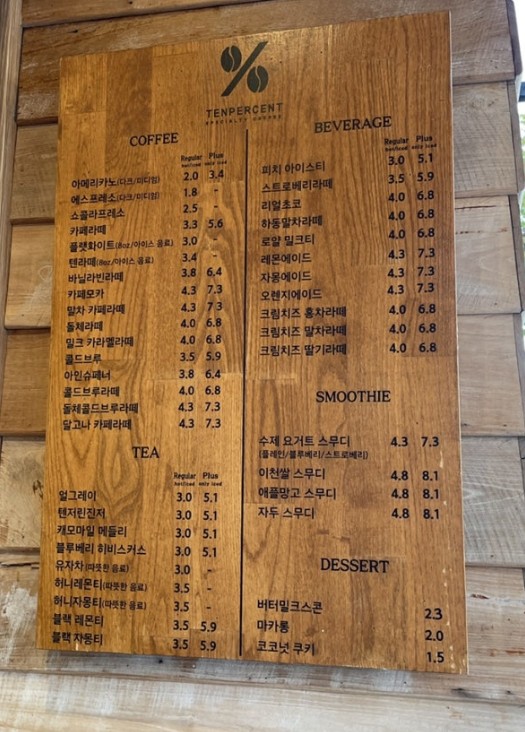 TENPERCENT
SPECIALTY COFFEE
COFFEE
Regular Plus
hot/iced only iced
아메리카노(다크/미디엄) 2.0 3.4
에스프레소(다크/미디엄) 1.8 -
쇼콜라프레소 2.5 -
카페라떼 3.3 5.6
플랫화이트(8oz/아이스 음료) 3.0 -
텐라떼(8oz/아이스 음료) 3.4 -
바닐라빈라떼 3.8 6.4
카페모카 4.3 7.3
말차 카페라떼 4.3 7.3
돌체라떼 4.0 6.8
밀크 카라멜라떼 4.0 6.8
콜드브루 3.5 5.9
아인슈페너 3.8 6.4
콜드브루라떼 4.0 6.8
돌체콜드브루라떼 4.3 7.3
달고나 카페라떼 4.3 7.3
TEA
Regular Plus
hot/iced only iced
얼그레이 3.0 5.1
텐저린진저 3.0 5.1
캐모마일 메들리 3.0 5.1
블루베리 히비스커스 3.0 5.1
유자차(따뜻한 음료) 3.0 -
허니레몬티(따뜻한 음료) 3.5 -
허니자몽티(따뜻한 음료) 3.5 -
블랙 레몬티 3.5 5.9
블랙 자몽티 3.5 5.9
BEVERAGE
Regular Plus
hot/iced only iced
피치 아이스티 3.0 5.1
스트로베리라떼 3.5 5.9
리얼초코 4.0 6.8
하동말차라떼 4.0 6.8
로얄 밀크티 4.0 6.8
레몬에이드 4.3 7.3
자몽에이드 4.3 7.3
오렌지에이드 4.3 7.3
크림치즈 홍차라떼 4.0 6.8
크림치즈 말차라떼 4.0 6.8
크림치즈 딸기라떼 4.0 6.8
SMOOTHIE
수제 요거트 스무디 4.3 7.3
(플레인/블루베리/스트로베리)
이천쌀 스무디 4.8 8.1
애플망고 스무디 4.8 8.1
자두 스무디 4.8 8.1
DESSERT
버터밀크스콘 2.3
마카롱 2.0
코코넛 쿠키 1.5